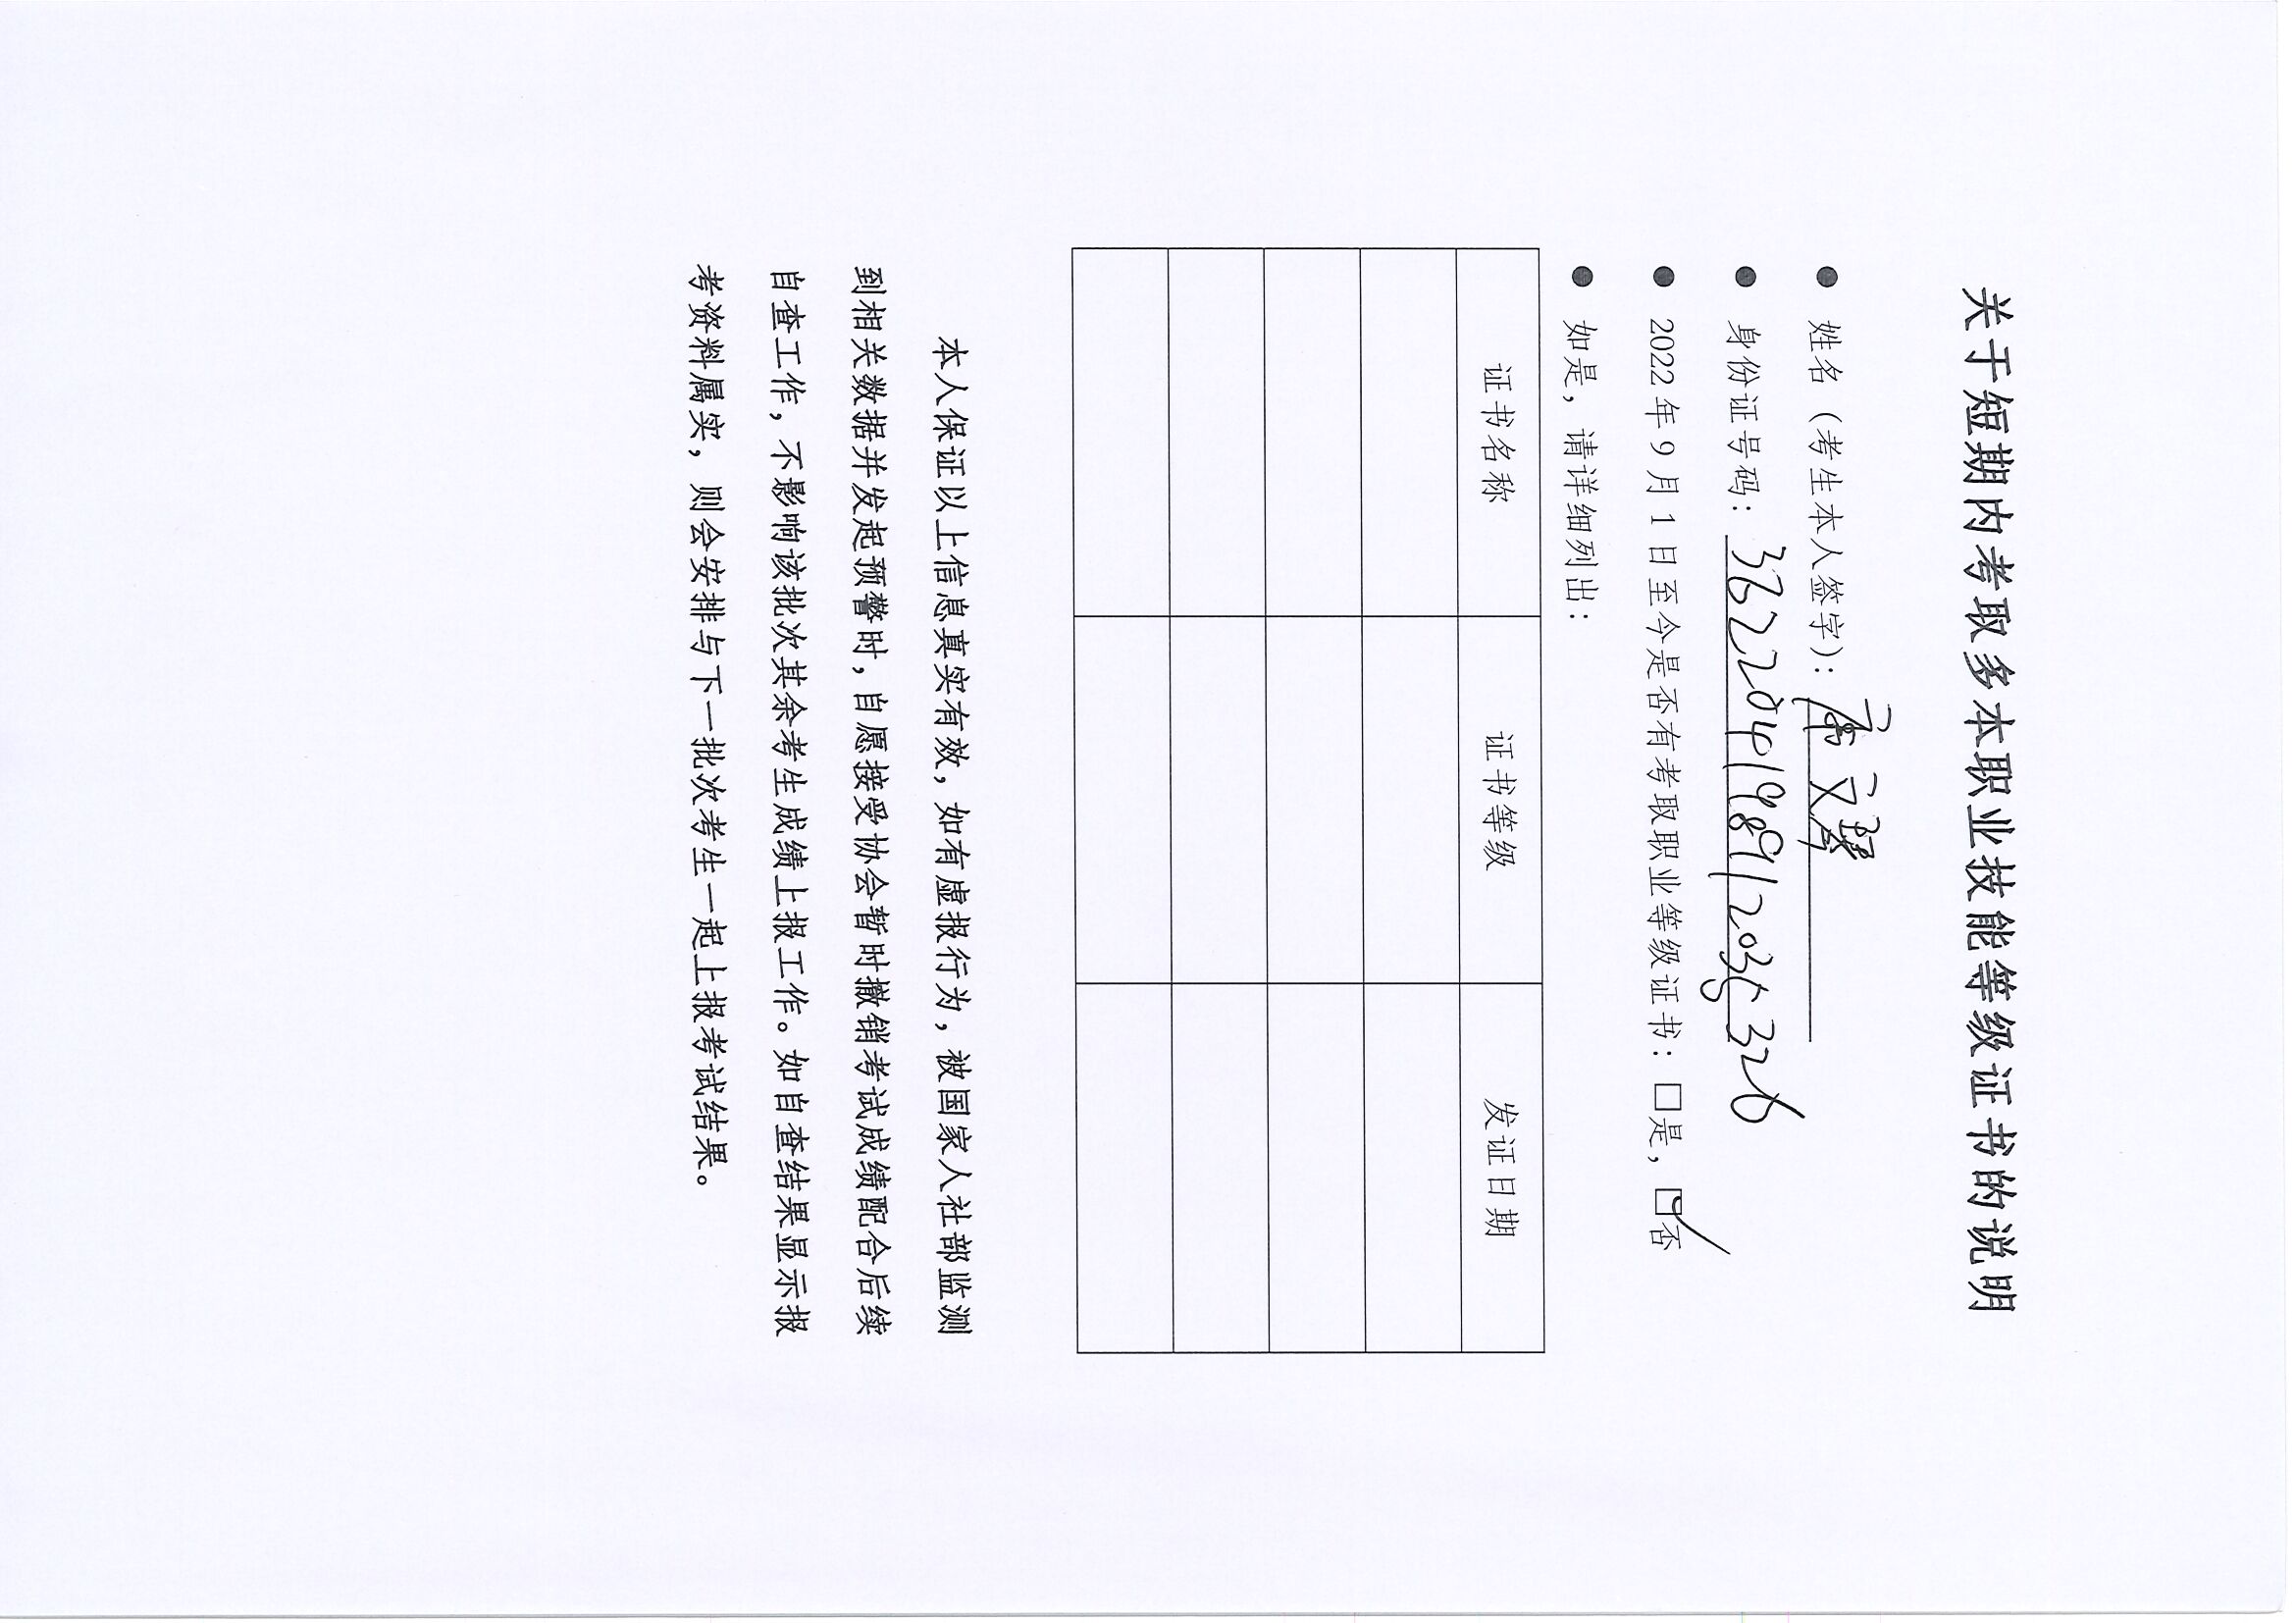 关于短期内考取多本职业技能等级证书的说明
● 姓名（考生本人签字）：
● 身份证号码：362204198912035326
● 2022年9月1日至今是否有考取职业等级证书：□是，☑否
● 如是，请详细列出：
证书名称 证书等级 发证日期
本人保证以上信息真实有效，如有虚报行为，被国家人社部监测
到相关数据并发起预警时，自愿接受协会暂时撤销考试成绩配合后续
自查工作，不影响该批次其余考生成绩上报工作。如自查结果显示报
考资料属实，则会安排与下一批次考生一起上报考试结果。